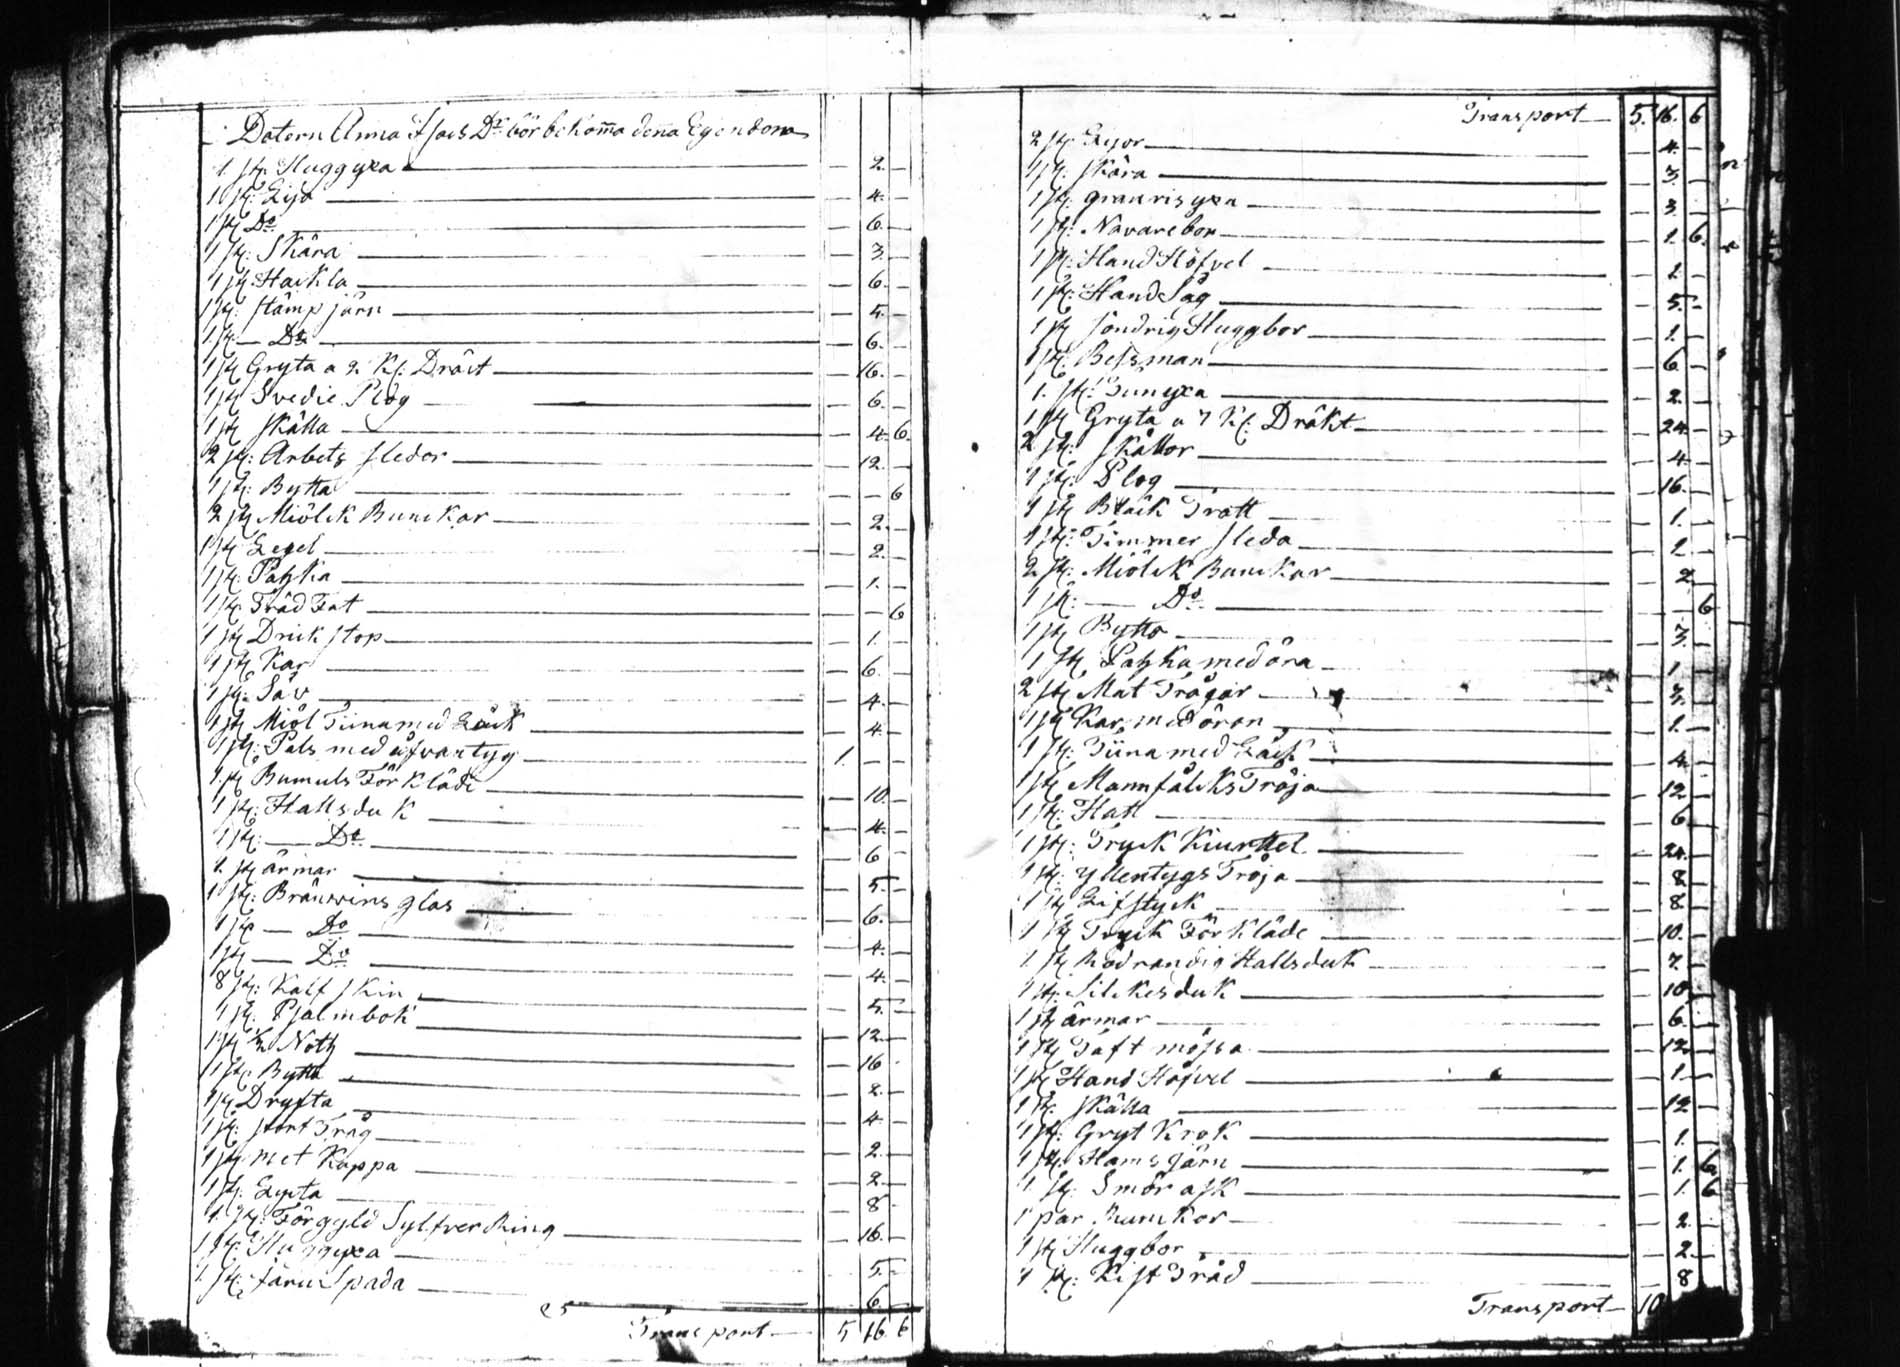 Datorn Anna Isacs Dr bör bekoma dena Egendom
1 st: Huggyxa — 2. —
1 st: Lija — 4. —
1 st Do — 6. —
1 st: Skära — 3. —
1 st Hackla — 6. —
1 st: stämpjärn — 5. —
1 st — Do — 6. —
1 st Gryta a 2 K: Dräct — 16. —
1 st Svedie Plog — 6. —
1 st skälla — 4. 6.
2 st: Arbets sledor — 12. —
1 st: Bytta — — 6
2 st Miölck Bunckar — 2. —
1 st Legel — 2. —
1 st: Patzka — 1. —
1 st Träd Fat — — 6
1 st Drickstop — 1. —
1 st Kar — 6. —
1 st: Så — 4. —
1 st Miöl Tiina med Låck — 4. —
1 st: Päls med åfvantyg 1. — —
1 st Bumuls Förkläde — 10. —
1 st: Hallsduk — 4. —
1 st: — Do — 6 —
1 st ärmar — 5. —
1 st: Bränwins glas — 6. —
1 st — Do — 4. —
1 st — Do — 4. —
8 st: Kalfskin — 5. —
1 st: Psalmbok — 12. —
1 st ½ Nöth — 16 —
1 st Bytta — 2. —
1 st Dryfta — 4. —
1 st: stort Tråg — 2. —
1 st met Kappa — 2. —
1 st: Lyxta — 8 —
1 st: Förgyld Sylfver Ring — 16. —
1 st: Huggyxa — 5. —
1 st: järn Spada — 6. —
Transport — 5 16. 6
Transport — 5. 16. 6
2 st: Lijor — 4. —
1 st: skära — 3. —
1 st: granrisyxa — 3. —
1 st: Navarebor — 1. 6.
1 st: Hand Höfvel — 1. —
1 st: Hand Såg — 5. —
1 st söndrig Huggbor — 1. —
1 st: Bessman — 6. —
1. st: Tunyxa — 2. —
1 st Gryta a 7 K: Dräkt — 24. —
2 st: skällor — 4. —
1 st: Plog — 16. —
1 st Bläck Tratt — 1. —
1 st: Timmer sleda — 1. —
2 st: Miölck Bunckar — 2. —
1 st: — Do — — 6
1 st Bytta — 3. —
1 st Patzka med öra — 1 —
2 st Mat Trågar — 3. —
1 st Kar med öron — 1. —
1 st: Tiina med Låck — 4. —
1 st Mannfålcks Tröja — 12 —
1 st: Hatt — 6 —
1 st: Tryck Kiurttel — 24. —
1 st: yllentygs Tröja — 8. —
1 st Lifstyck — 8. —
1 st Tryck Förkläde — 10. —
1 st Rödrandig Hallsduk — 7. —
1 st: Silckesduk — 10 —
1 st ärmar — 6. —
1 st Taft mössa — 12. —
1 st Hand Höfvel — 1. —
1 st: skälla — 12 —
1 st: Gryt Krok — 1. —
1 st: Hamsjärn — 1. 6
1 st: Smör ask — 1. 6
1 par Bunckor — 2. —
1 st Huggbor — 2. —
1 st: Kist Träd — 8
Transport — 10